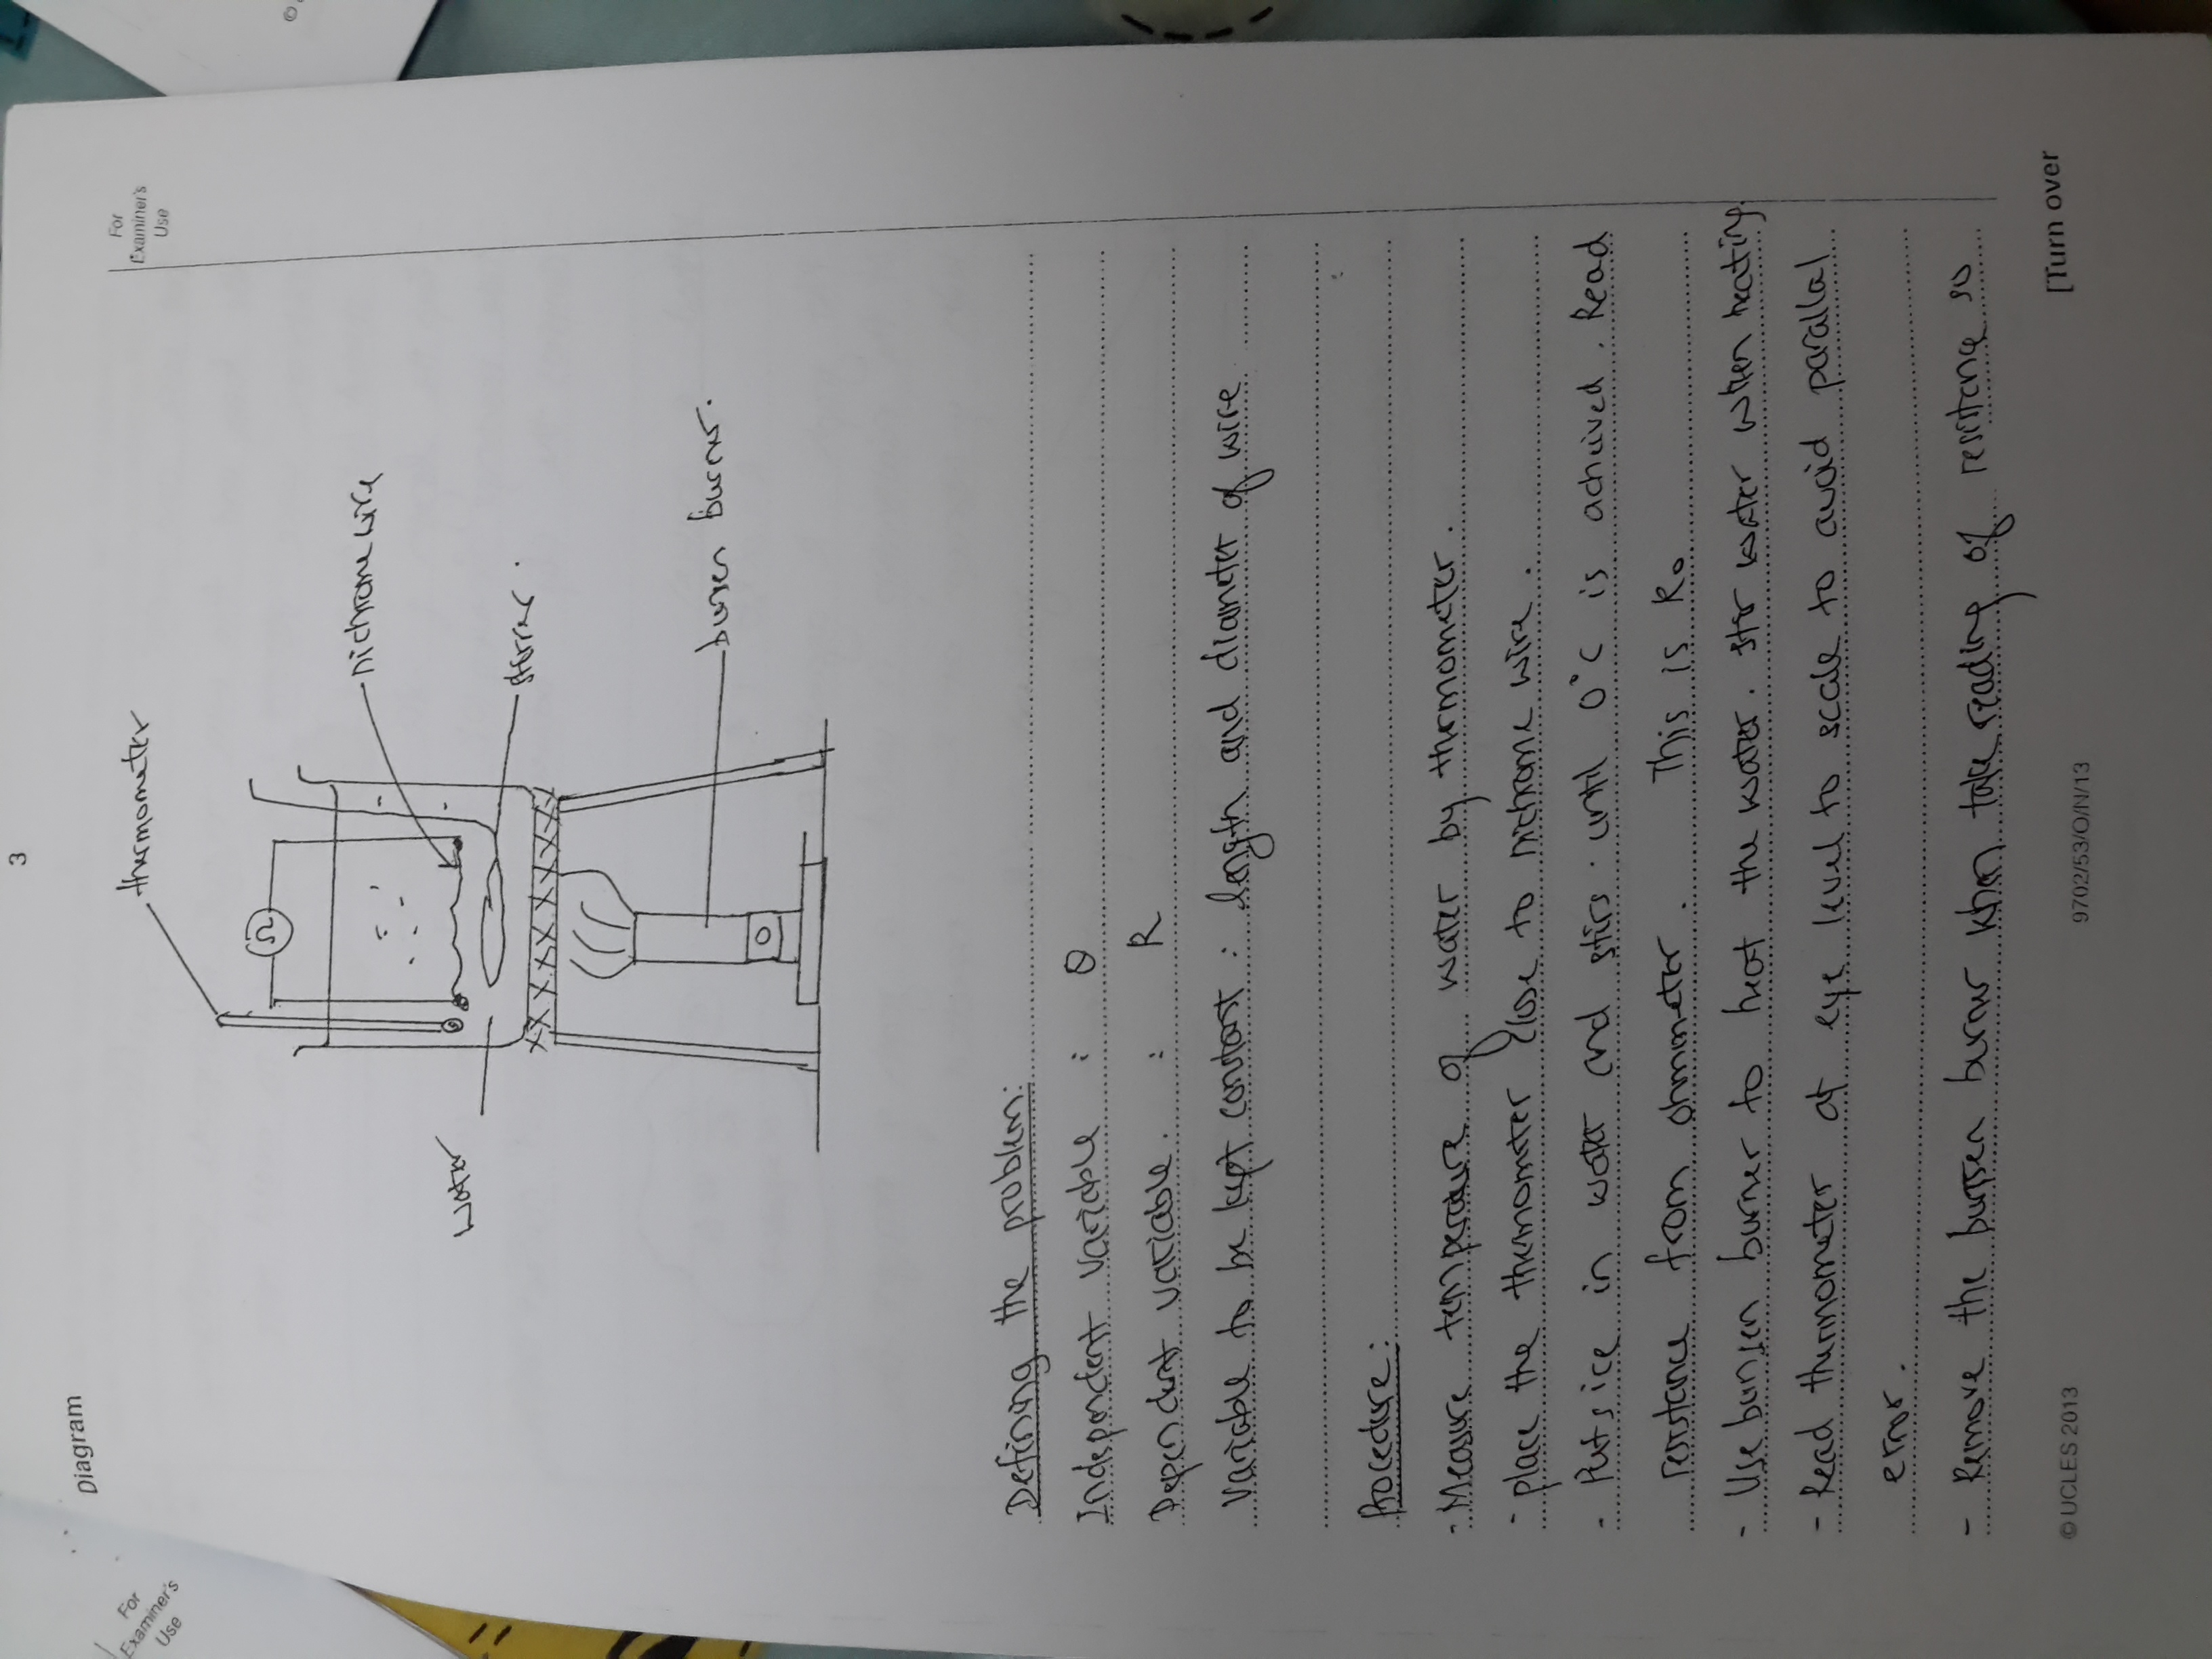 3
Diagram
For
Examiner's
Use
For
Examiner's
Use
thermometer
Ω
nichrome wire
water
stirrer.
bunsen burner.
Defining the problem:
Independent variable : θ
Dependent variable. : R
Variable to be kept constant : length and diameter of wire
Procedure:
- Measure temperature of water by thermometer.
- place the thermometer close to nichrome wire.
- Puts ice in water and stirs until 0°C is acheived. Read
resistance from ohmmeter. This is R₀
- Use bunsen burner to heat the water. stir water when heating.
- Read thermometer at eye level to scale to avoid parallal
error.
- Remove the bunsen burner when take reading of resistance so
[Turn over
© UCLES 2013
9702/53/O/N/13
©